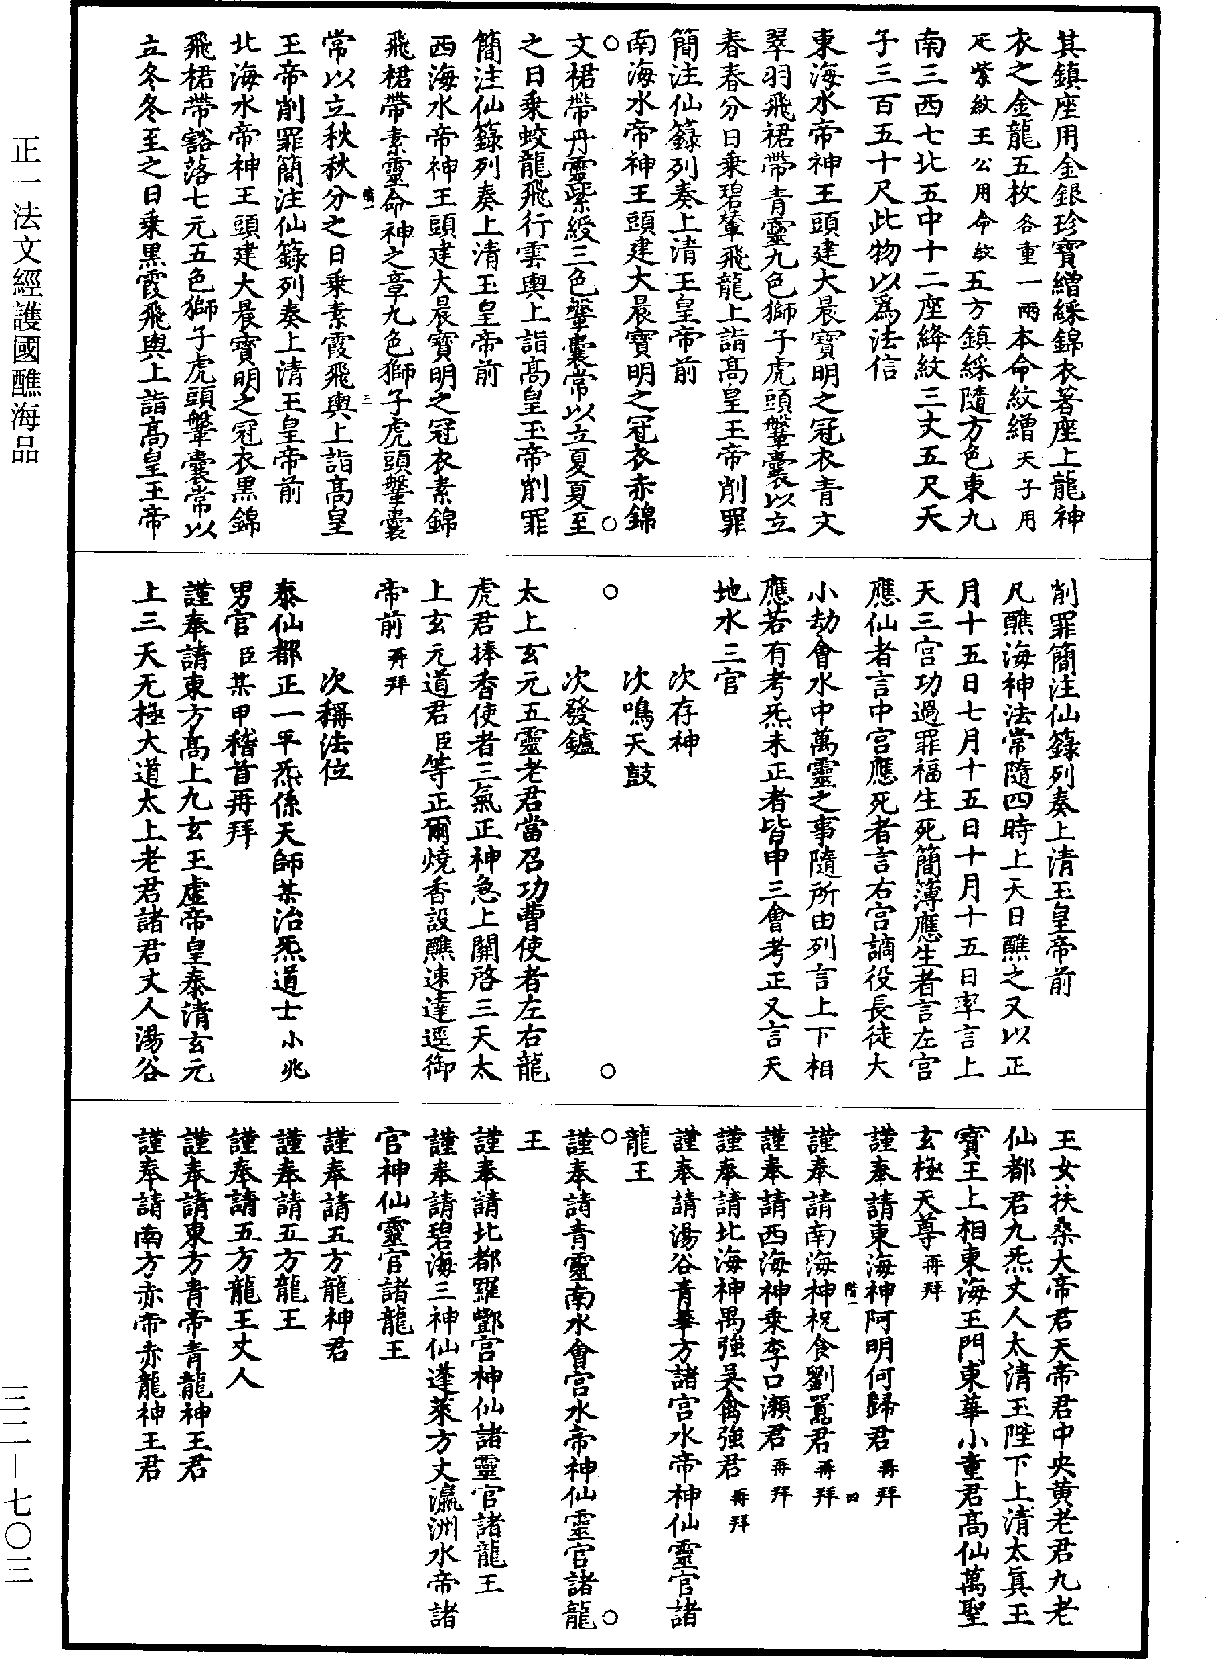 其鎮座用金銀珍寶繒綵錦衣著座上龍神
衣之金龍五枚各重一兩本命紋繒天子用
疋紫紋王公用命紋五方鎮綵隨方色東九
南三西七北五中十二座絳紋三丈五尺天
子三百五十尺此物以爲法信
東海水帝神王頭建大晨寶明之冠衣青文
翠羽飛裙帶青靈九色獅子虎頭鞶囊以立
春春分日乗碧輦飛龍上詣高皇玉帝削罪
簡注仙籙列奏上清玉皇帝前
南海水帝神王頭建大晨寶明之冠衣赤錦
文裙帶丹靈紫綬三色鞶囊常以立夏夏至
之日乗蛟龍飛行雲輿上詣高皇玉帝削罪
簡注仙籙列奏上清玉皇帝前
西海水帝神王頭建大晨寶明之冠衣素錦
飛裙帶素靈命神之章九色獅子虎頭鞶囊
常以立秋秋分之日乗素霞飛輿上詣高皇
玉帝削罪簡注仙籙列奏上清玉皇帝前
北海水帝神王頭建大晨寶明之冠衣黒錦
飛裙帶豁落七元五色獅子虎頭鞶囊常以
立冬冬至之日乗黒霞飛輿上詣高皇玉帝
削罪簡注仙籙列奏上清玉皇帝前
凡醮海神法常隨四時上天日醮之又以正
月十五日七月十五日十月十五日率言上
天三官功過罪福生死簡簿應生者言左宫
應仙者言中宫應死者言右宫謫役長徒大
小劫會水中萬靈之事隨所由列言上下相
應若有考炁未正者皆申三會考正又言天
地水三官
次存神
次鳴天鼓
次發鑪
太上玄元五靈老君當召功曹使者左右龍
虎君捧香使者三氣正神急上關啓三天太
上玄元道君臣等正爾燒香設醮速達逕御
帝前再拜
次稱法位
泰仙都正一平炁係天師某治炁道士小兆
男官臣某甲稽首再拜
謹奉請東方高上九玄玉虛帝皇泰清玄元
上三天无極大道太上老君諸君丈人湯谷
玉女扶桑大帝君天帝君中央黄老君九老
仙都君九炁丈人太清玉陛下上清太眞王
寶王上相東海王門東華小童君高仙萬聖
玄極天尊再拜
謹奉請東海神阿明何歸君再拜
謹奉請南海神祝食劉囂君再拜
謹奉請西海神乗李口瀬君再拜
謹奉請北海神禺強吴禽強君再拜
謹奉請湯谷青華方諸宫水帝神仙靈官諸
龍王
謹奉請青靈南水會宫水帝神仙靈官諸龍
王
謹奉請北都羅酆宫神仙諸靈官諸龍王
謹奉請碧海三神仙蓬萊方丈瀛洲水帝諸
官神仙靈官諸龍王
謹奉請五方龍神君
謹奉請五方龍王
謹奉請五方龍王丈人
謹奉請東方青帝青龍神王君
謹奉請南方赤帝赤龍神王君
正一法文經護國醮海品
三二—七〇三